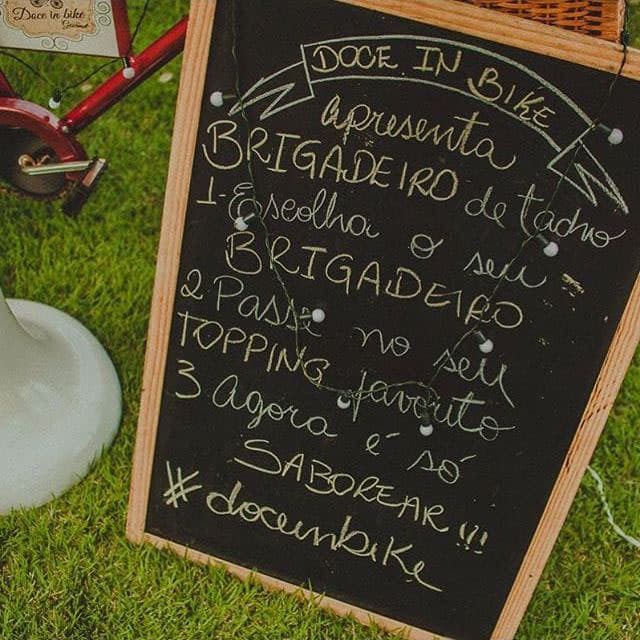 Doce in bike
Gourmet
DOCE IN BIKE
apresenta
BRIGADEIRO de tacho
1-Escolha o seu
BRIGADEIRO
2 Passe no seu
TOPPING favorito
3 Agora é só
SABOREAR!!!
#doceinbike